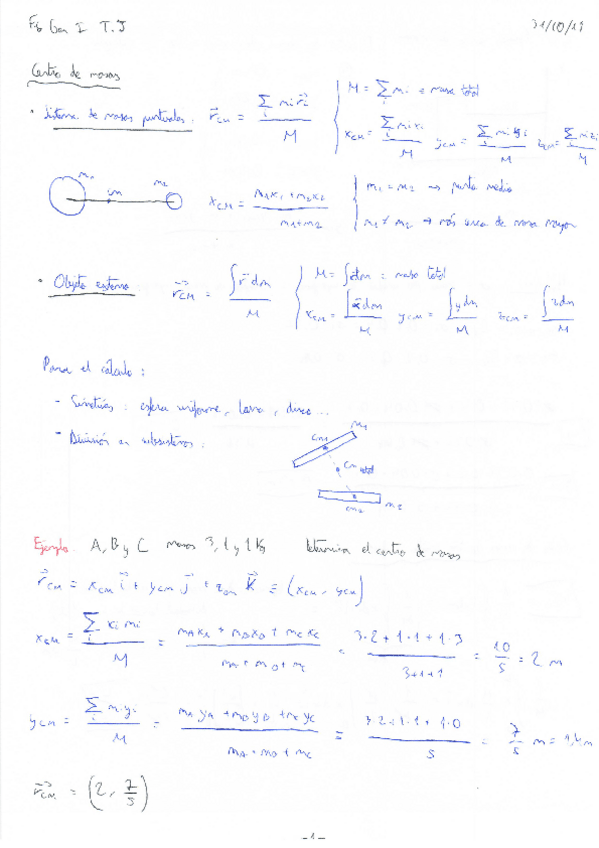 Fís Gen I T.7 31/10/19
Centro de masas
• Sistema de masas puntuales: r⃗CM = Σi mi r⃗i / M { M = Σi mi = masa total
xCM = Σi mi xi / M yCM = Σi mi yi / M zCM = Σi mi zi / M
m1 cm m2 xCM = m1x1 + m2x2 / m1+m2 { m1 = m2 → punto medio
m1 ≠ m2 → más cerca de masa mayor
• Objeto extenso r⃗CM = ∫ r⃗ dm / M { M = ∫ dm = masa total
xCM = ∫ x dm / M yCM = ∫ y dm / M zCM = ∫ z dm / M
Para el cálculo:
- Simetrías: esfera uniforme, barra, disco...
- División en subsistemas:
cm1 m1
cm total
cm2 m2
Ejemplo A, B y C masas 3, 1 y 1 Kg Determina el centro de masas
r⃗CM = xCM i⃗ + yCM j⃗ + zCM K⃗ ≡ (xCM, yCM)
xCM = Σi xi mi / M = mAxA + mBxB + mCxC / mA + mB + mC = 3·2 + 1·1 + 1·3 / 3+1+1 = 10/5 = 2 m
yCM = Σi mi yi / M = mA yA + mB yB + mC yC / mA + mB + mC = 3·2 + 1·1 + 1·0 / 5 = 7/5 m = 1,4 m
r⃗CM = (2, 7/5)
-1-